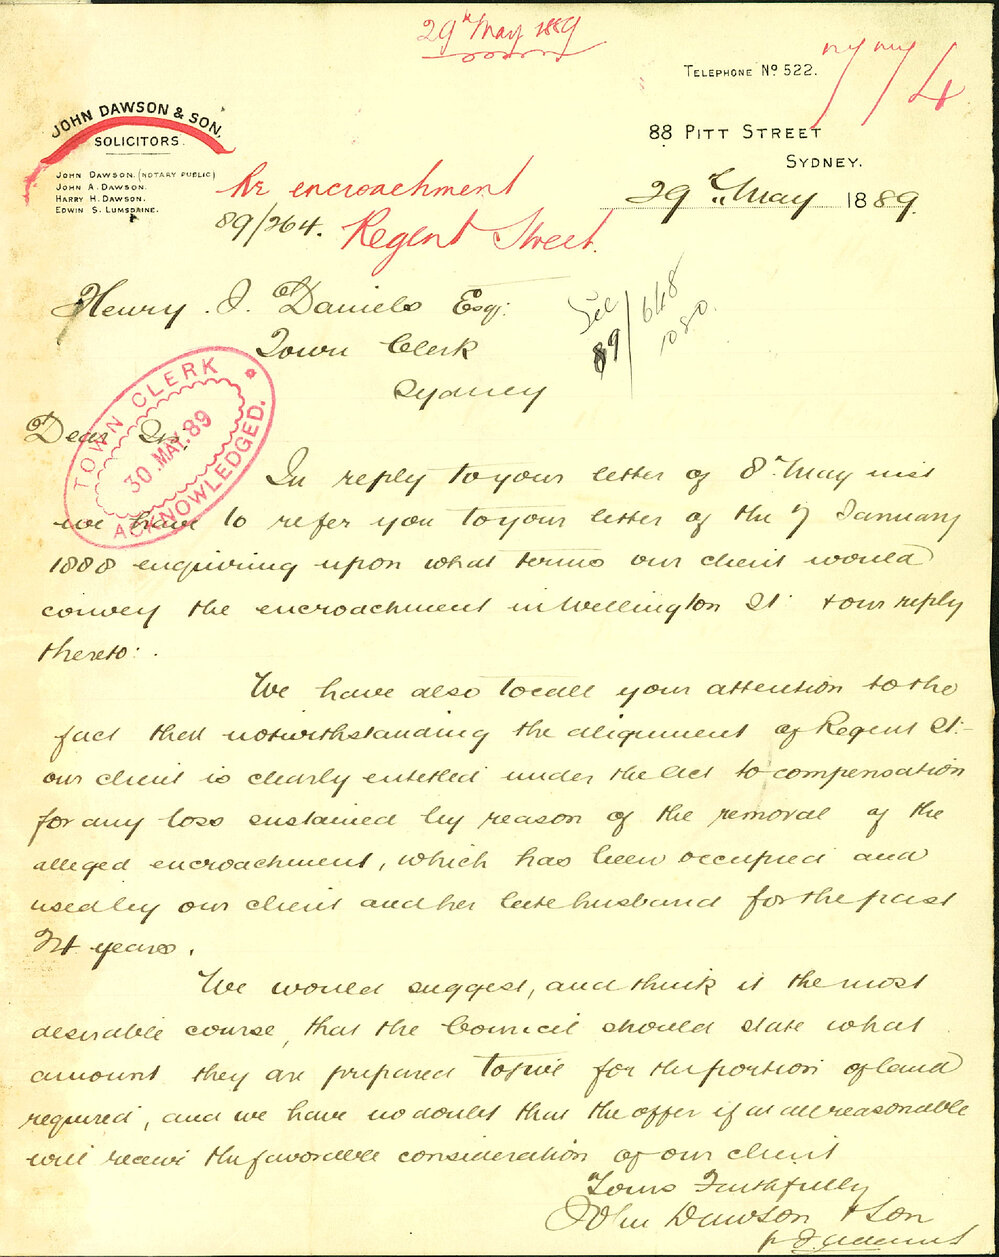 29th May 1889
774
TELEPHONE No 522.
JOHN DAWSON & SON,
SOLICITORS.
88 PITT STREET
SYDNEY.
JOHN DAWSON. (NOTARY PUBLIC)
JOHN A. DAWSON.
HARRY H. DAWSON.
EDWIN S. LUMSDAINE.
29th May 1889.
Re encroachment
89/264. Regent Street.
Henry . J. Daniels Esq:
Town Clerk
Sydney
89/648
1080.
TOWN CLERK
30.MAY.89
ACKNOWLEDGED.
Dear Sir,
In reply to your letter of 8th May inst
we have to refer you to your letter of the 7 January
1888 enquiring upon what terms our client would
convey the encroachment in Wellington St. & our reply
thereto: .
We have also to call your attention to the
fact that notwithstanding the alignment of Regent St:-
our client is clearly entitled under the Act to compensation
for any loss sustained by reason of the removal of the
alleged encroachment, which has been occupied and
used by our client and her late husband for the past
24 years.
We would suggest, and think it the most
desirable course, that the Council should state what
amount they are prepared to give for the portion of land
required, and we have no doubt that the offer if at all reasonable
will receive the favorable consideration of our client
Yours Faithfully
John Dawson & Son